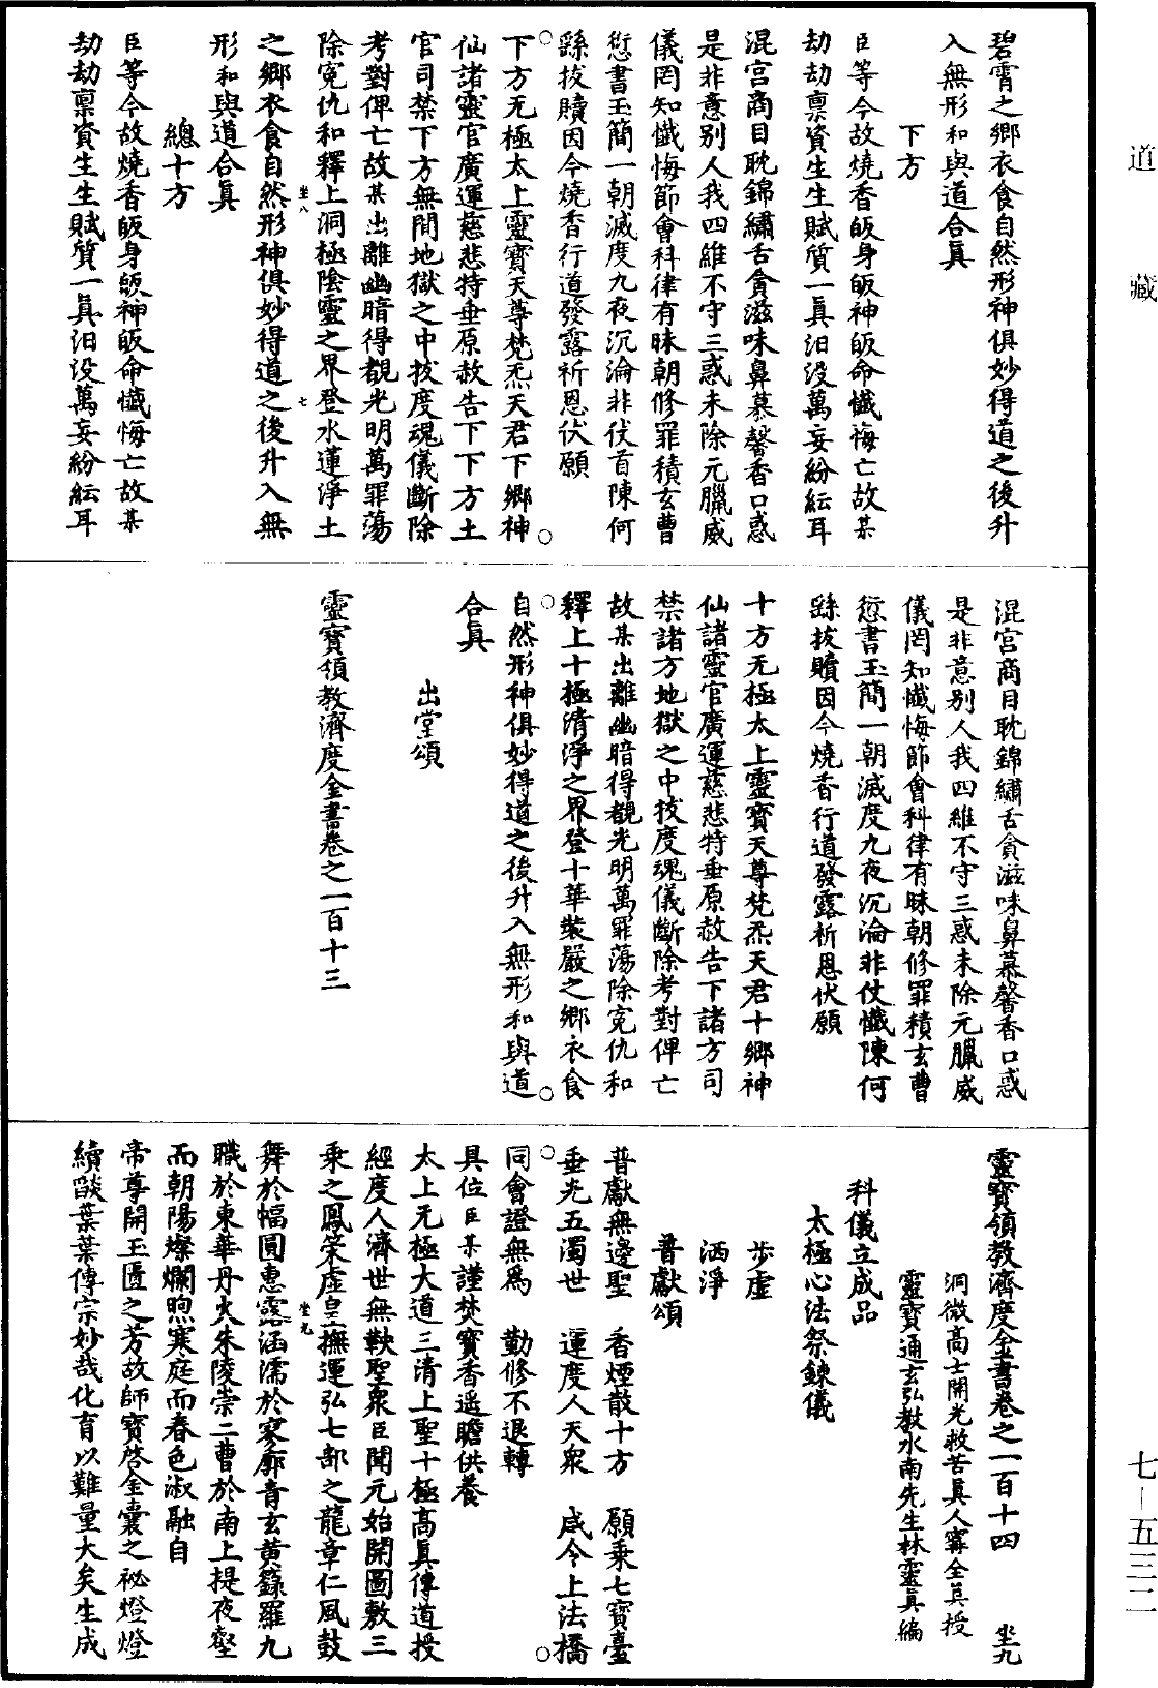 道藏
碧霄之鄉衣食自然形神俱妙得道之後升
入無形和與道合真
下方
臣等今故燒香皈身皈神皈命懺悔亡故某
劫劫禀資生生賦質一真汨没萬妄紛紜耳
混宮商目耽錦繡舌貪滋味鼻慕馨香口惑
是非意別人我四維不守三惑未除元臘威
儀罔知懺悔節會科律有昧朝修罪積玄曹
愆書玉簡一朝滅度九夜沉淪非伏首陳何
繇拔贖因今燒香行道發露祈恩伏願
下方无極太上靈寶天尊梵炁天君下鄉神
仙諸靈官廣運慈悲特垂原赦告下下方土
官司禁下方無間地獄之中拔度魂儀斷除
考對俾亡故某出離幽暗得覩光明萬罪蕩
除冤仇和釋上洞極陰靈之界登水蓮淨土
之鄉衣食自然形神俱妙得道之後升入無
形和與道合真
總十方
臣等今故燒香皈身皈神皈命懺悔亡故某
劫劫禀資生生賦質一真汨没萬妄紛紜耳
混宮商目耽錦繡舌貪滋味鼻慕馨香口惑
是非意別人我四維不守三惑未除元臘威
儀罔知懺悔節會科律有昧朝修罪積玄曹
愆書玉簡一朝滅度九夜沉淪非仗懺陳何
繇拔贖因今燒香行道發露祈恩伏願
十方无極太上靈寶天尊梵炁天君十鄉神
仙諸靈官廣運慈悲特垂原赦告下諸方司
禁諸方地獄之中拔度魂儀斷除考對俾亡
故某出離幽暗得覩光明萬罪蕩除冤仇和
釋上十極清淨之界登十華裝嚴之鄉衣食
自然形神俱妙得道之後升入無形和與道
合真
出堂頌
靈寶領教濟度金書卷之一百十三
靈寶領教濟度金書卷之一百十四 坐九
洞微高士開光救苦真人甯全真授
靈寶通玄弘教水南先生林靈真編
科儀立成品
太極心法祭鍊儀
步虛
洒淨
普獻頌
普獻無邊聖 香煙散十方 願乘七寶臺
垂光五濁世 運度人天衆 咸令上法橋
同會證無為 勤修不退轉
具位臣某謹焚寶香遥瞻供養
太上无極大道三清上聖十極高真傳道授
經度人濟世無鞅聖衆臣聞元始開圖敷三
乘之鳳笈虛皇撫運弘七部之龍章仁風鼓
舞於幅圓惠露涵濡於寥廓青玄黄籙羅九
職於東華丹火朱陵崇二曹於南上提夜壑
而朝陽燦爛煦寒庭而春色淑融自
帝尊開玉匱之芳故師寶啓金囊之祕燈燈
續燄葉葉傳宗妙哉化育以難量大矣生成
七－五三二